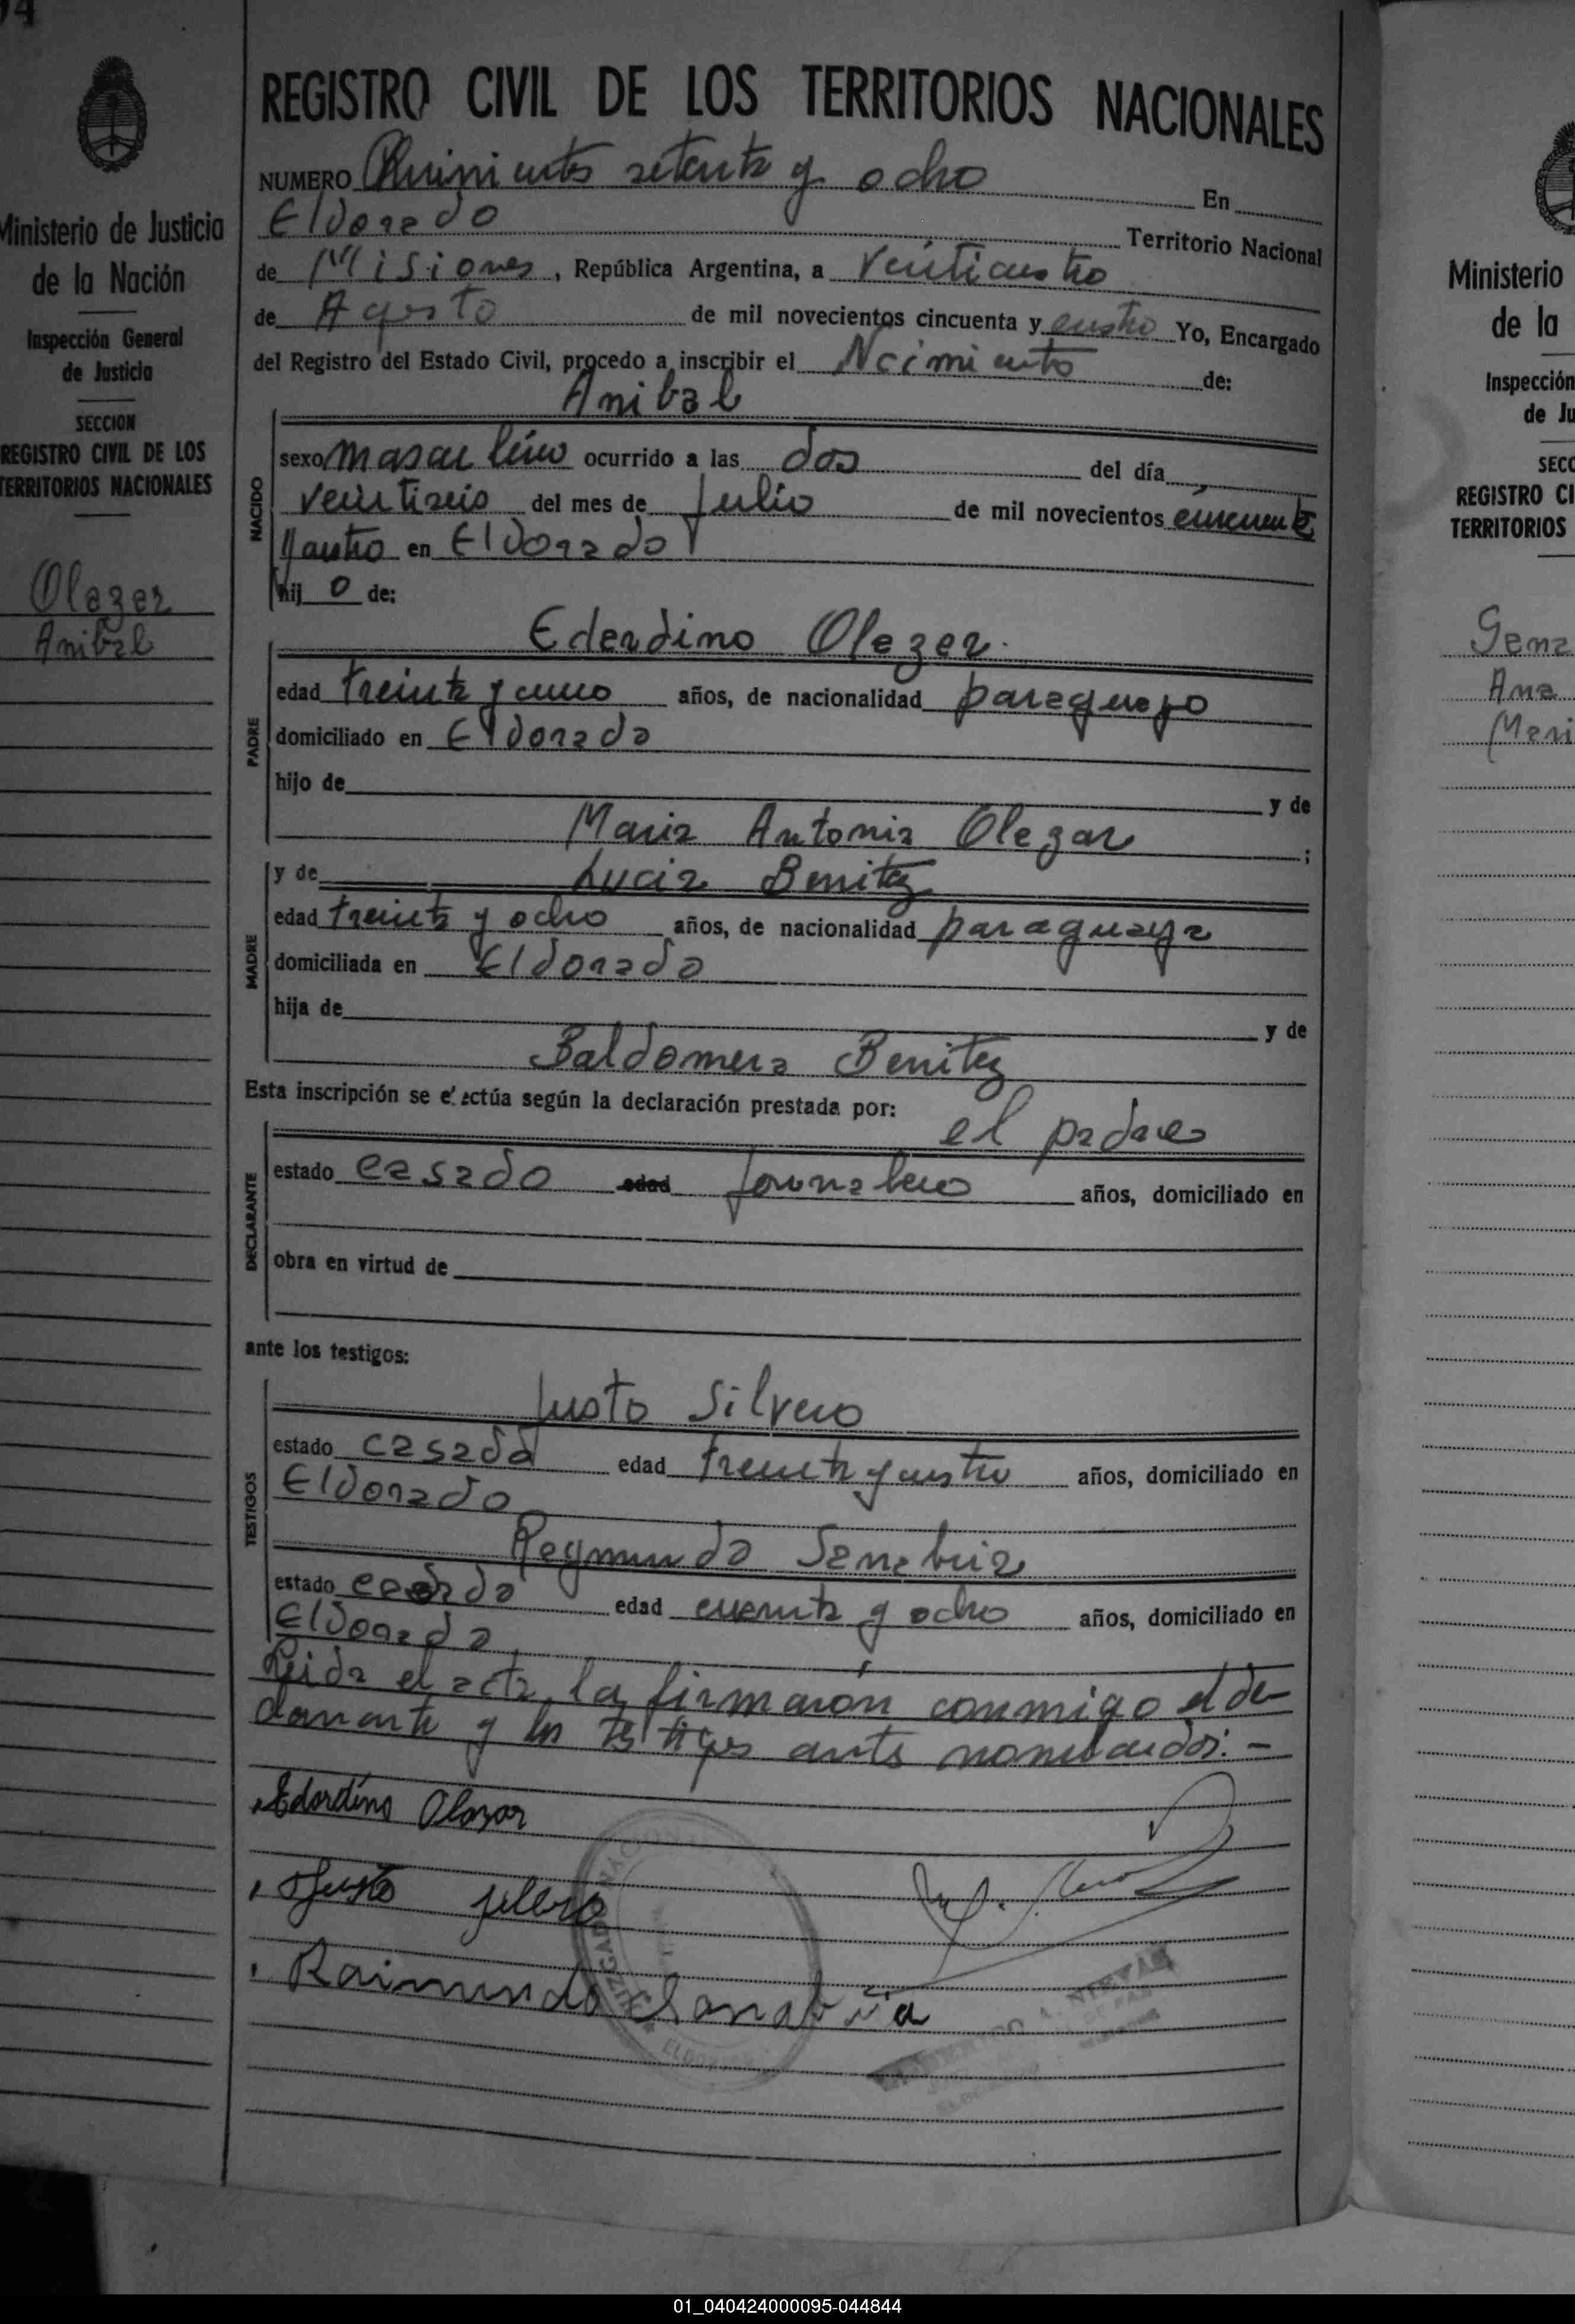 04
REGISTRO CIVIL DE LOS TERRITORIOS NACIONALES
NUMERO Quinientos setenta y ocho En
Eldorado Territorio Nacional
de Misiones, República Argentina, a veinticuatro
de Agosto de mil novecientos cincuenta y cuatro Yo, Encargado
del Registro del Estado Civil, procedo a inscribir el Ncimiento de:
Ministerio de Justicia
de la Nación
Inspección General
de Justicia
SECCION
REGISTRO CIVIL DE LOS
TERRITORIOS NACIONALES
Olazar
Anibal
NACIDO
Anibal
sexo masculino ocurrido a las dos del día
veintiseis del mes de Julio de mil novecientos cincuenta
y cuatro en Eldorado
hijo de:
PADRE
Edardino Olazar
edad treinta y cinco años, de nacionalidad paraguayo
domiciliado en Eldorado
hijo de y de
Maria Antonia Olazar ;
MADRE
y de Lucia Benitez
edad treinta y ocho años, de nacionalidad paraguaya
domiciliada en Eldorado
hija de y de
Baldomera Benitez
Esta inscripción se efectúa según la declaración prestada por:
DECLARANTE
el padre
estado casado edad Jornalero años, domiciliado en
obra en virtud de
ante los testigos:
TESTIGOS
Justo Silvero
estado casado edad treinta y cuatro años, domiciliado en
Eldorado
Raymundo Sanabria
estado casado edad cuarenta y ocho años, domiciliado en
Eldorado
Leida el acta, la firmaron conmigo el de-
clarante y los testigos ants nombrados.-
Edardino Olazar
Justo silbero
Raimundo Sanabria
JUZGADO
ELDORADO
Ministerio
de la
Inspección
de Ju
SECC
REGISTRO CI
TERRITORIOS
Gena
Ana
Mari
01_040424000095-044844